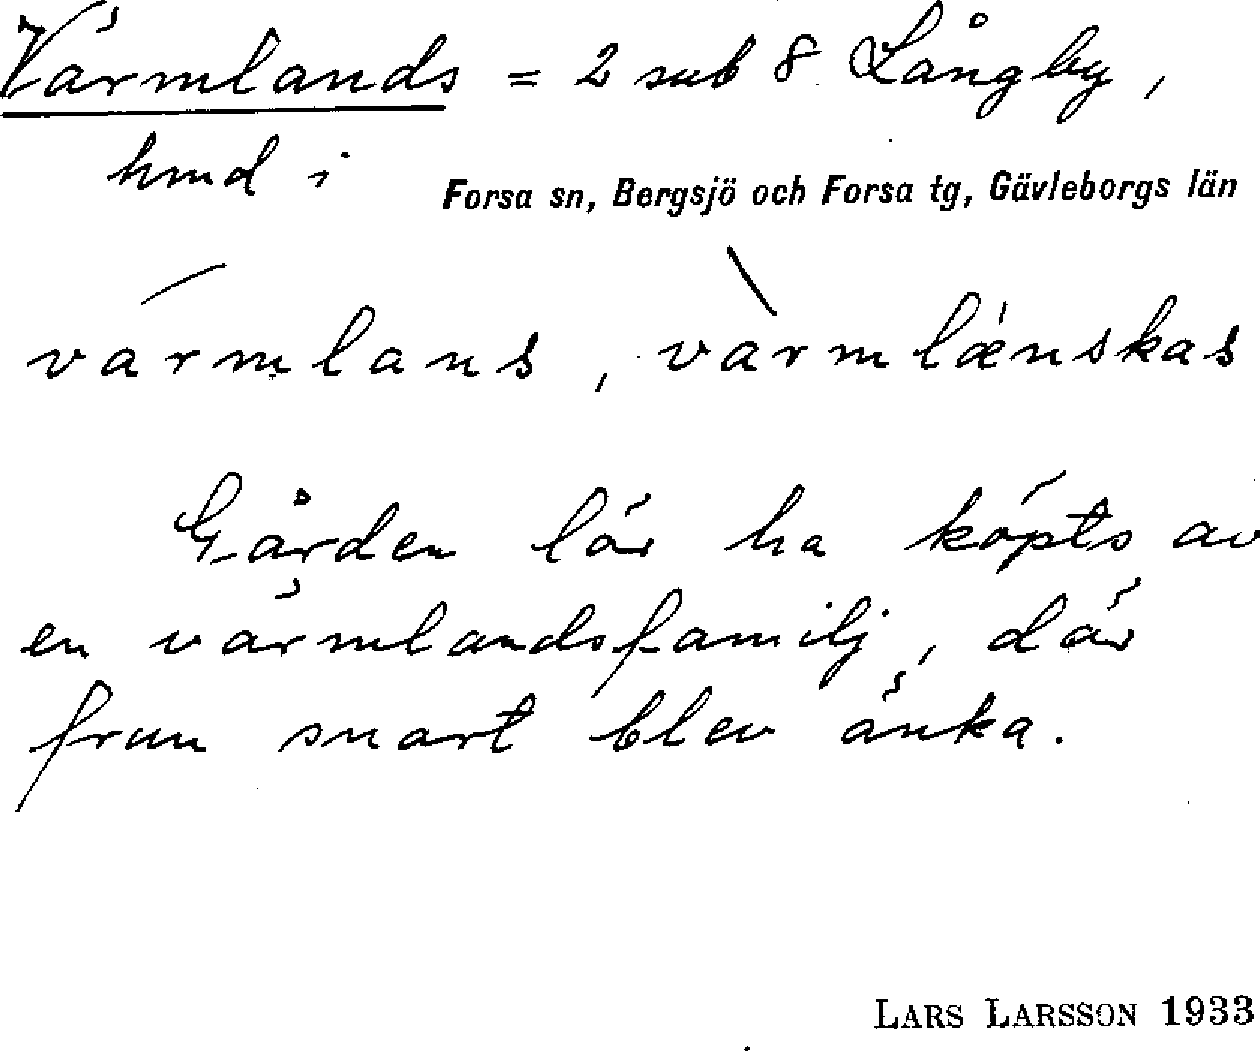 Värmlands = 2 sub 8 Långby,
hmd i Forsa sn, Bergsjö och Forsa tg, Gävleborgs län
vármlans, vàrmlǽnskas
Gården lär ha köpts av
en värmlandsfamilj, där
frun snart blev änka.
LARS LARSSON 1933